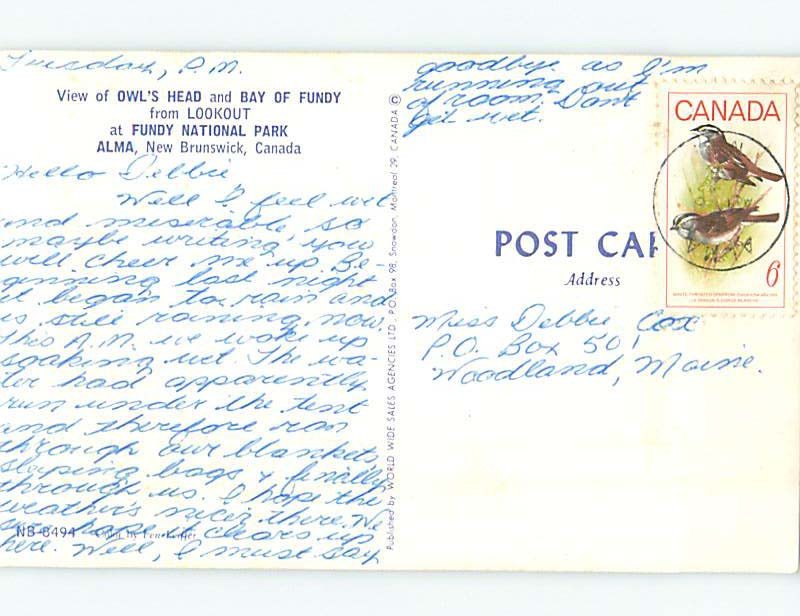 Tuesday, P.M.
View of OWL'S HEAD and BAY OF FUNDY
from LOOKOUT
at FUNDY NATIONAL PARK
ALMA, New Brunswick, Canada
Hello Debbie
Well I feel wet
and miserable so
maybe writing you
will cheer me up. Be-
ginning last night
it began to rain and
is still raining, now,
this A.M. we woke up
soaking wet. The wa-
ter had apparently
run under the tent
and therefore ran
through our blankets
sleeping bags & finally
through us. I hope the
weather's nicer there. We
hope it clears up
NB-8494
here. Well, I must say
goodbye as I'm
running out
of room. Don't
get wet.
Published by WORLD WIDE SALES AGENCIES LTD. P.O. Box 98, Snowdon, Montreal 29, CANADA ©
CANADA
6
POST CAR
Address
Miss Debbie Cox
P.O. Box 501
Woodland, Maine.